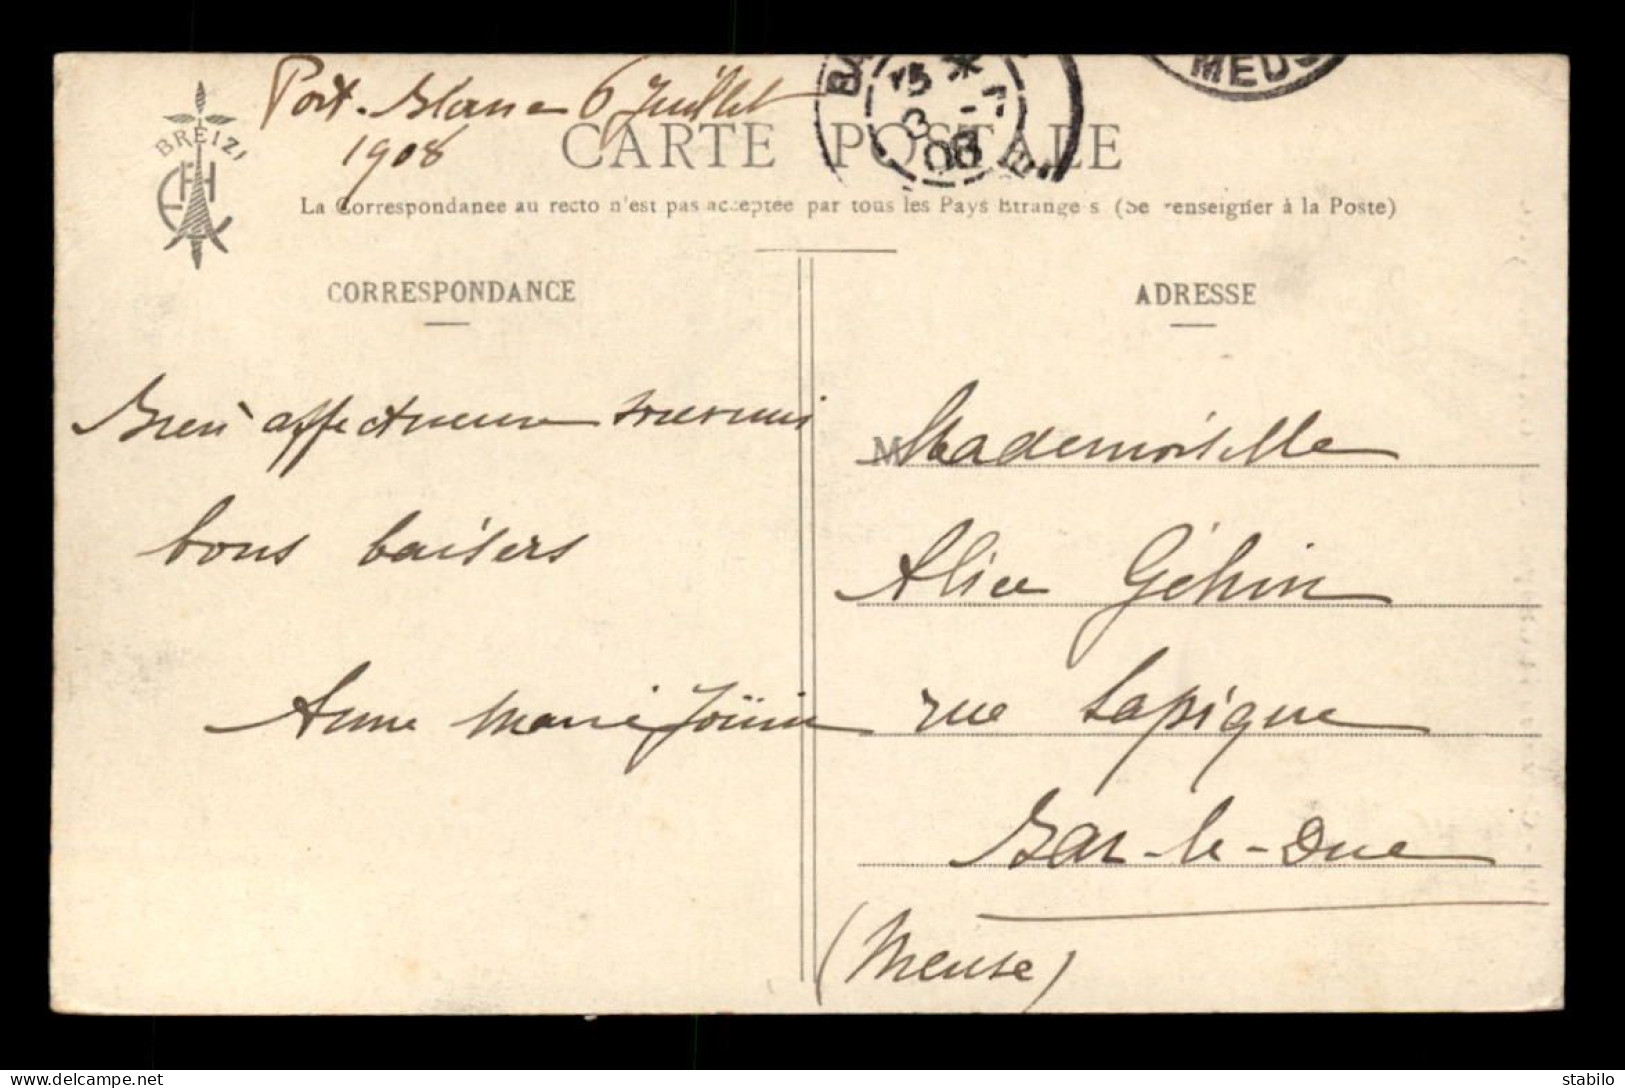 Port-Blanc 6 Juillet
1908
BREIZ
CARTE POSTALE
La Correspondance au recto n'est pas acceptée par tous les Pays Etrangers (Se renseigner à la Poste)
CORRESPONDANCE
ADRESSE
Bien affectueux souvenir
bons baisers
Anne Marie Jouin
M
Mademoiselle
Alice Géhin
rue Lapique
Bar-le-Duc
(Meuse)
BA
MEUS
delcampe.net
stabilo